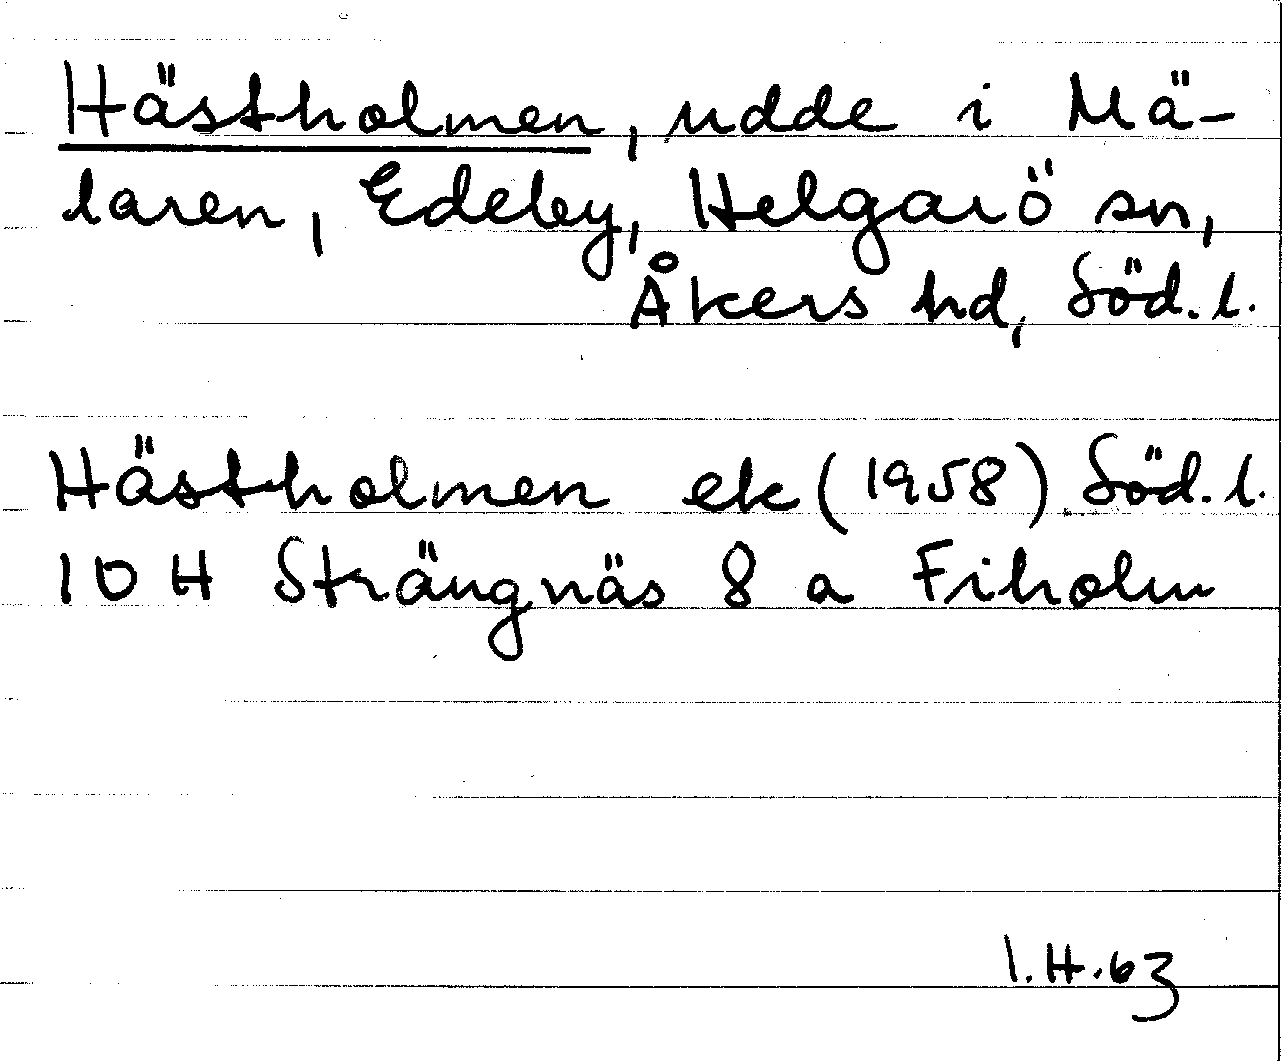 Hästholmen, udde i Mä-
laren, Edeby, Helgarö sn,
Åkers hd, Söd. l.
Hästholmen ek (1958) Söd. l.
10 H Strängnäs 8 a Fiholm
I.H.63